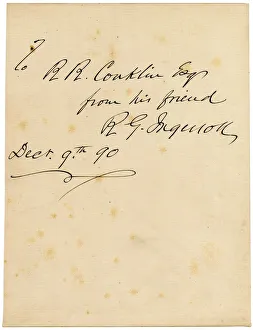 To R R. Conklin Esq
from his friend
R G. Ingersoll
Decr. 9.th 90